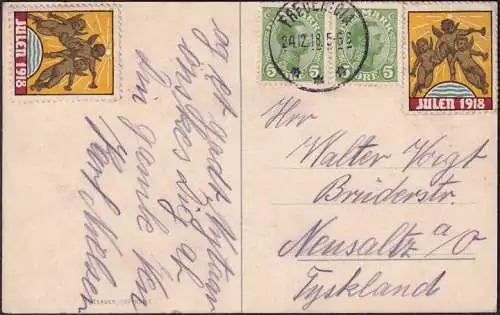 JULEN 1918
FREDERICIA
24.12.18.5-6 E
DANMARK
5 ØRE
5 ØRE
JULEN 1918
og et godt Nytaar
ønskes Dig af
din gamle Ven
Karl Nielsen
Herr
Walter Voigt
Brüderstr.
Neusaltz a/O
Tyskland